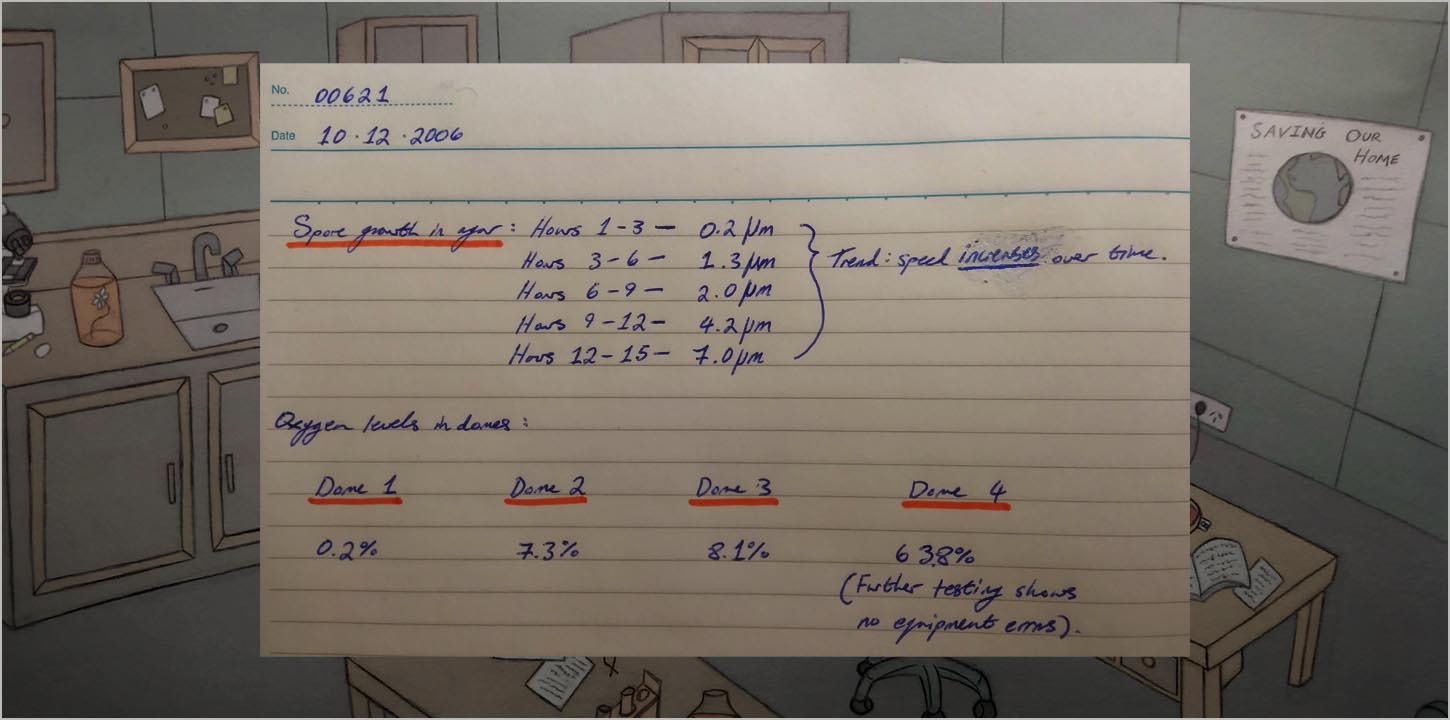 No. 00621
Date 10·12·2006
Spore growth in agar: Hours 1-3 — 0.2 μm
Hours 3-6 — 1.3 μm
Hours 6-9 — 2.0 μm
Hours 9-12 — 4.2 μm
Hours 12-15 — 7.0 μm
Trend: speed increases over time.
Oxygen levels in domes:
Dome 1 Dome 2 Dome 3 Dome 4
0.2% 7.3% 8.1% 638%
(Further testing shows
no equipment errors).
SAVING OUR
HOME